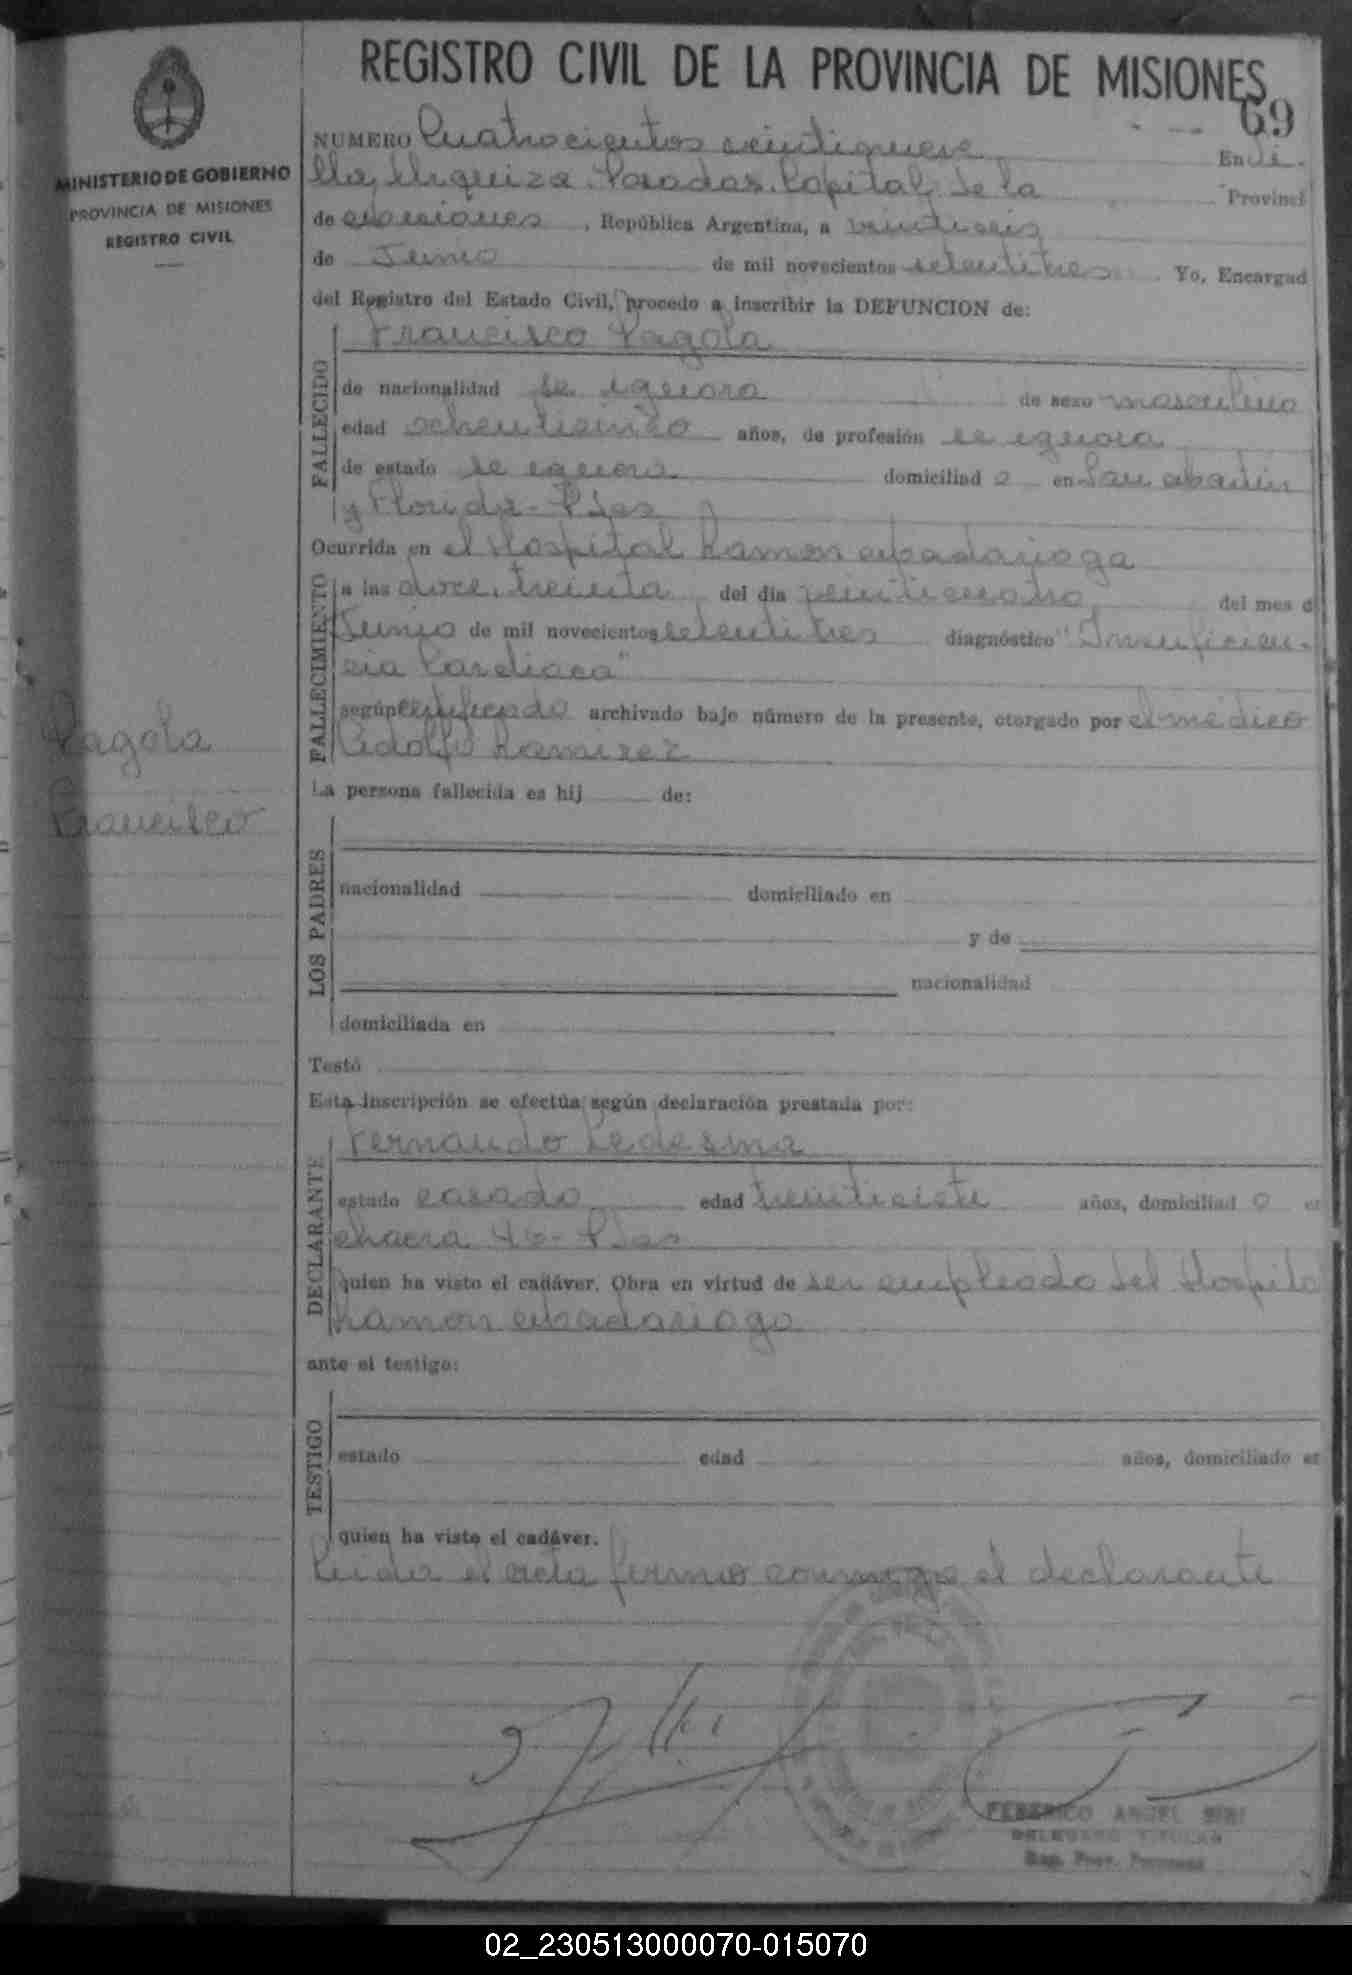 REGISTRO CIVIL DE LA PROVINCIA DE MISIONES
69
MINISTERIO DE GOBIERNO
PROVINCIA DE MISIONES
REGISTRO CIVIL
NUMERO Cuatrocientos veintinueve En Vi-
lla Urquiza. Posadas. Capital de la Provinci
de Misiones, República Argentina, a veintiseis
de Junio de mil novecientos setentitres. Yo, Encargad
del Registro del Estado Civil, procedo a inscribir la DEFUNCION de:
Francisco Pagola
FALLECIDO
de nacionalidad se ignora de sexo masculino
edad ochenticinco años, de profesión se ignora
de estado se ignora domiciliad o en San Martin
y Florida - Pdas
Ocurrida en el Hospital Ramon Madariaga
FALLECIMIENTO
a las doce, treinta del día veinticuatro del mes d
Junio de mil novecientos setentitres diagnóstico "Insuficien-
cia Cardiaca"
según certificado archivado bajo número de la presente, otorgado por el médico
Adolfo Ramirez
Pagola
Francisco
La persona fallecida es hij de:
LOS PADRES
nacionalidad domiciliado en
y de
nacionalidad
domiciliada en
Testó
Esta inscripción se efectúa según declaración prestada por:
Fernando Ledesma
DECLARANTE
estado casado edad treintisiete años, domiciliad o en
chacra 46 - Pdas
quien ha visto el cadáver. Obra en virtud de ser empleado del Hospita
Ramon Madariaga
ante el testigo:
TESTIGO
estado edad años, domiciliado en
quien ha visto el cadáver.
Leida el acta firmo conmigo el declarante
FEDERICO ANGEL
DELEGADO TITULAR
Reg. Prov. Personas
02_230513000070-015070